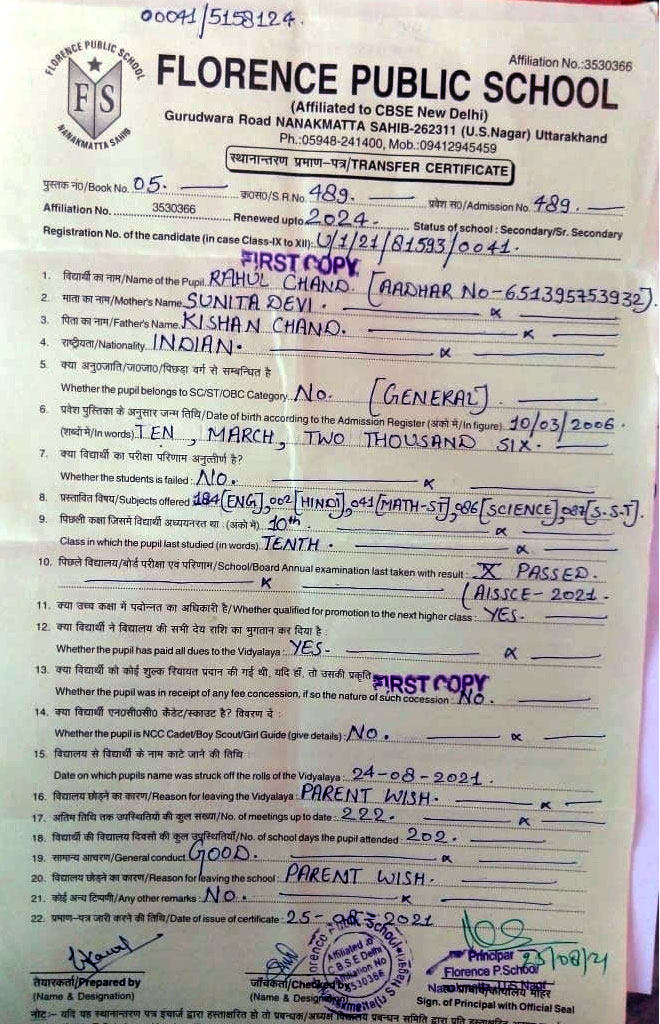 00041/5158124.
Affiliation No.:3530366
FLORENCE PUBLIC SCHOOL
NANAKMATTA SAHIB
F S
FLORENCE PUBLIC SCHOOL
(Affiliated to CBSE New Delhi)
Gurudwara Road NANAKMATTA SAHIB-262311 (U.S.Nagar) Uttarakhand
Ph.:05948-241400, Mob.:09412945459
स्थानान्तरण प्रमाण-पत्र/TRANSFER CERTIFICATE
पुस्तक नं0/Book No. 05. क्र0सं0/S.R.No. 489. प्रवेश सं0/Admission No. 489.
Affiliation No. 3530366 Renewed upto 2024. Status of school : Secondary/Sr. Secondary
Registration No. of the candidate (in case Class-IX to XII): U/1/21/81593/0041.
FIRST COPY
1. विद्यार्थी का नाम/Name of the Pupil. RAHUL CHAND. [AADHAR No-651395753932].
2. माता का नाम/Mother's Name. SUNITA DEVI.
3. पिता का नाम/Father's Name. KISHAN CHAND.
4. राष्ट्रीयता/Nationality. INDIAN.
5. क्या अनु0जाति/ज0जा0/पिछड़ा वर्ग से सम्बन्धित है
Whether the pupil belongs to SC/ST/OBC Category. No. [GENERAL]
6. प्रवेश पुस्तिका के अनुसार जन्म तिथि/Date of birth according to the Admission Register (अंको मे/In figure) 10/03/2006.
(शब्दो मे/In words). TEN, MARCH, TWO THOUSAND SIX.
7. क्या विद्यार्थी का परीक्षा परिणाम अनुत्तीर्ण है?
Whether the students is failed: No.
8. प्रस्तावित विषय/Subjects offered 184[ENG],002[HINDI],041[MATH-ST],086[SCIENCE],087[S.S.T].
9. पिछली कक्षा जिसमें विद्यार्थी अध्ययनरत था : (अंको में) 10th.
Class in which the pupil last studied (in words). TENTH.
10. पिछले विद्यालय/बोर्ड परीक्षा एवं परिणाम/School/Board Annual examination last taken with result : X PASSED.
(AISSCE-2021.
11. क्या उच्च कक्षा में पदोन्नत का अधिकारी है/Whether qualified for promotion to the next higher class : YES.
12. क्या विद्यार्थी ने विद्यालय की सभी देय राशि का भुगतान कर दिया है :
Whether the pupil has paid all dues to the Vidyalaya : YES.
13. क्या विद्यार्थी को कोई शुल्क रियायत प्रदान की गई थी, यदि हाँ, तो उसकी प्रकृति
FIRST COPY
Whether the pupil was in receipt of any fee concession, if so the nature of such cocession : No.
14. क्या विद्यार्थी एन0सी0सी0 कैडेट/स्काउट है? विवरण दे :
Whether the pupil is NCC Cadet/Boy Scout/Girl Guide (give details) : No.
15. विद्यालय से विद्यार्थी के नाम काटे जाने की तिथि
Date on which pupils name was struck off the rolls of the Vidyalaya : 24-08-2021.
16. विद्यालय छोड़ने का कारण/Reason for leaving the Vidyalaya: PARENT WISH.
17. अंतिम तिथि तक उपस्थितियों की कुल संख्या/No. of meetings up to date : 222.
18. विद्यार्थी की विद्यालय दिवसों की कुल उपस्थितियाँ/No. of school days the pupil attended : 202.
19. सामान्य आचरण/General conduct. GOOD.
20. विद्यालय छोड़ने का कारण/Reason for leaving the school : PARENT WISH.
21. कोई अन्य टिप्पणी/Any other remarks : No.
22. प्रमाण-पत्र जारी करने की तिथि/Date of issue of certificate : 25-08-2021
Florence Public School
Affiliated to
C B S E Delhi
Affiliation No
3530366
25/08/21
Principar
Florence P.School
तैयारकर्ता/Prepared by
(Name & Designation)
जाँचकर्ता/Checked by
(Name & Designation)
Sign. of Principal with Official Seal
नोट:- यदि यह स्थानानतरण पत्र इंचार्ज द्वारा हस्ताक्षरित हो तो प्रबन्धक/अध्यक्ष विद्यालय प्रबन्धन समिति द्वारा प्रति हस्ताक्षरित